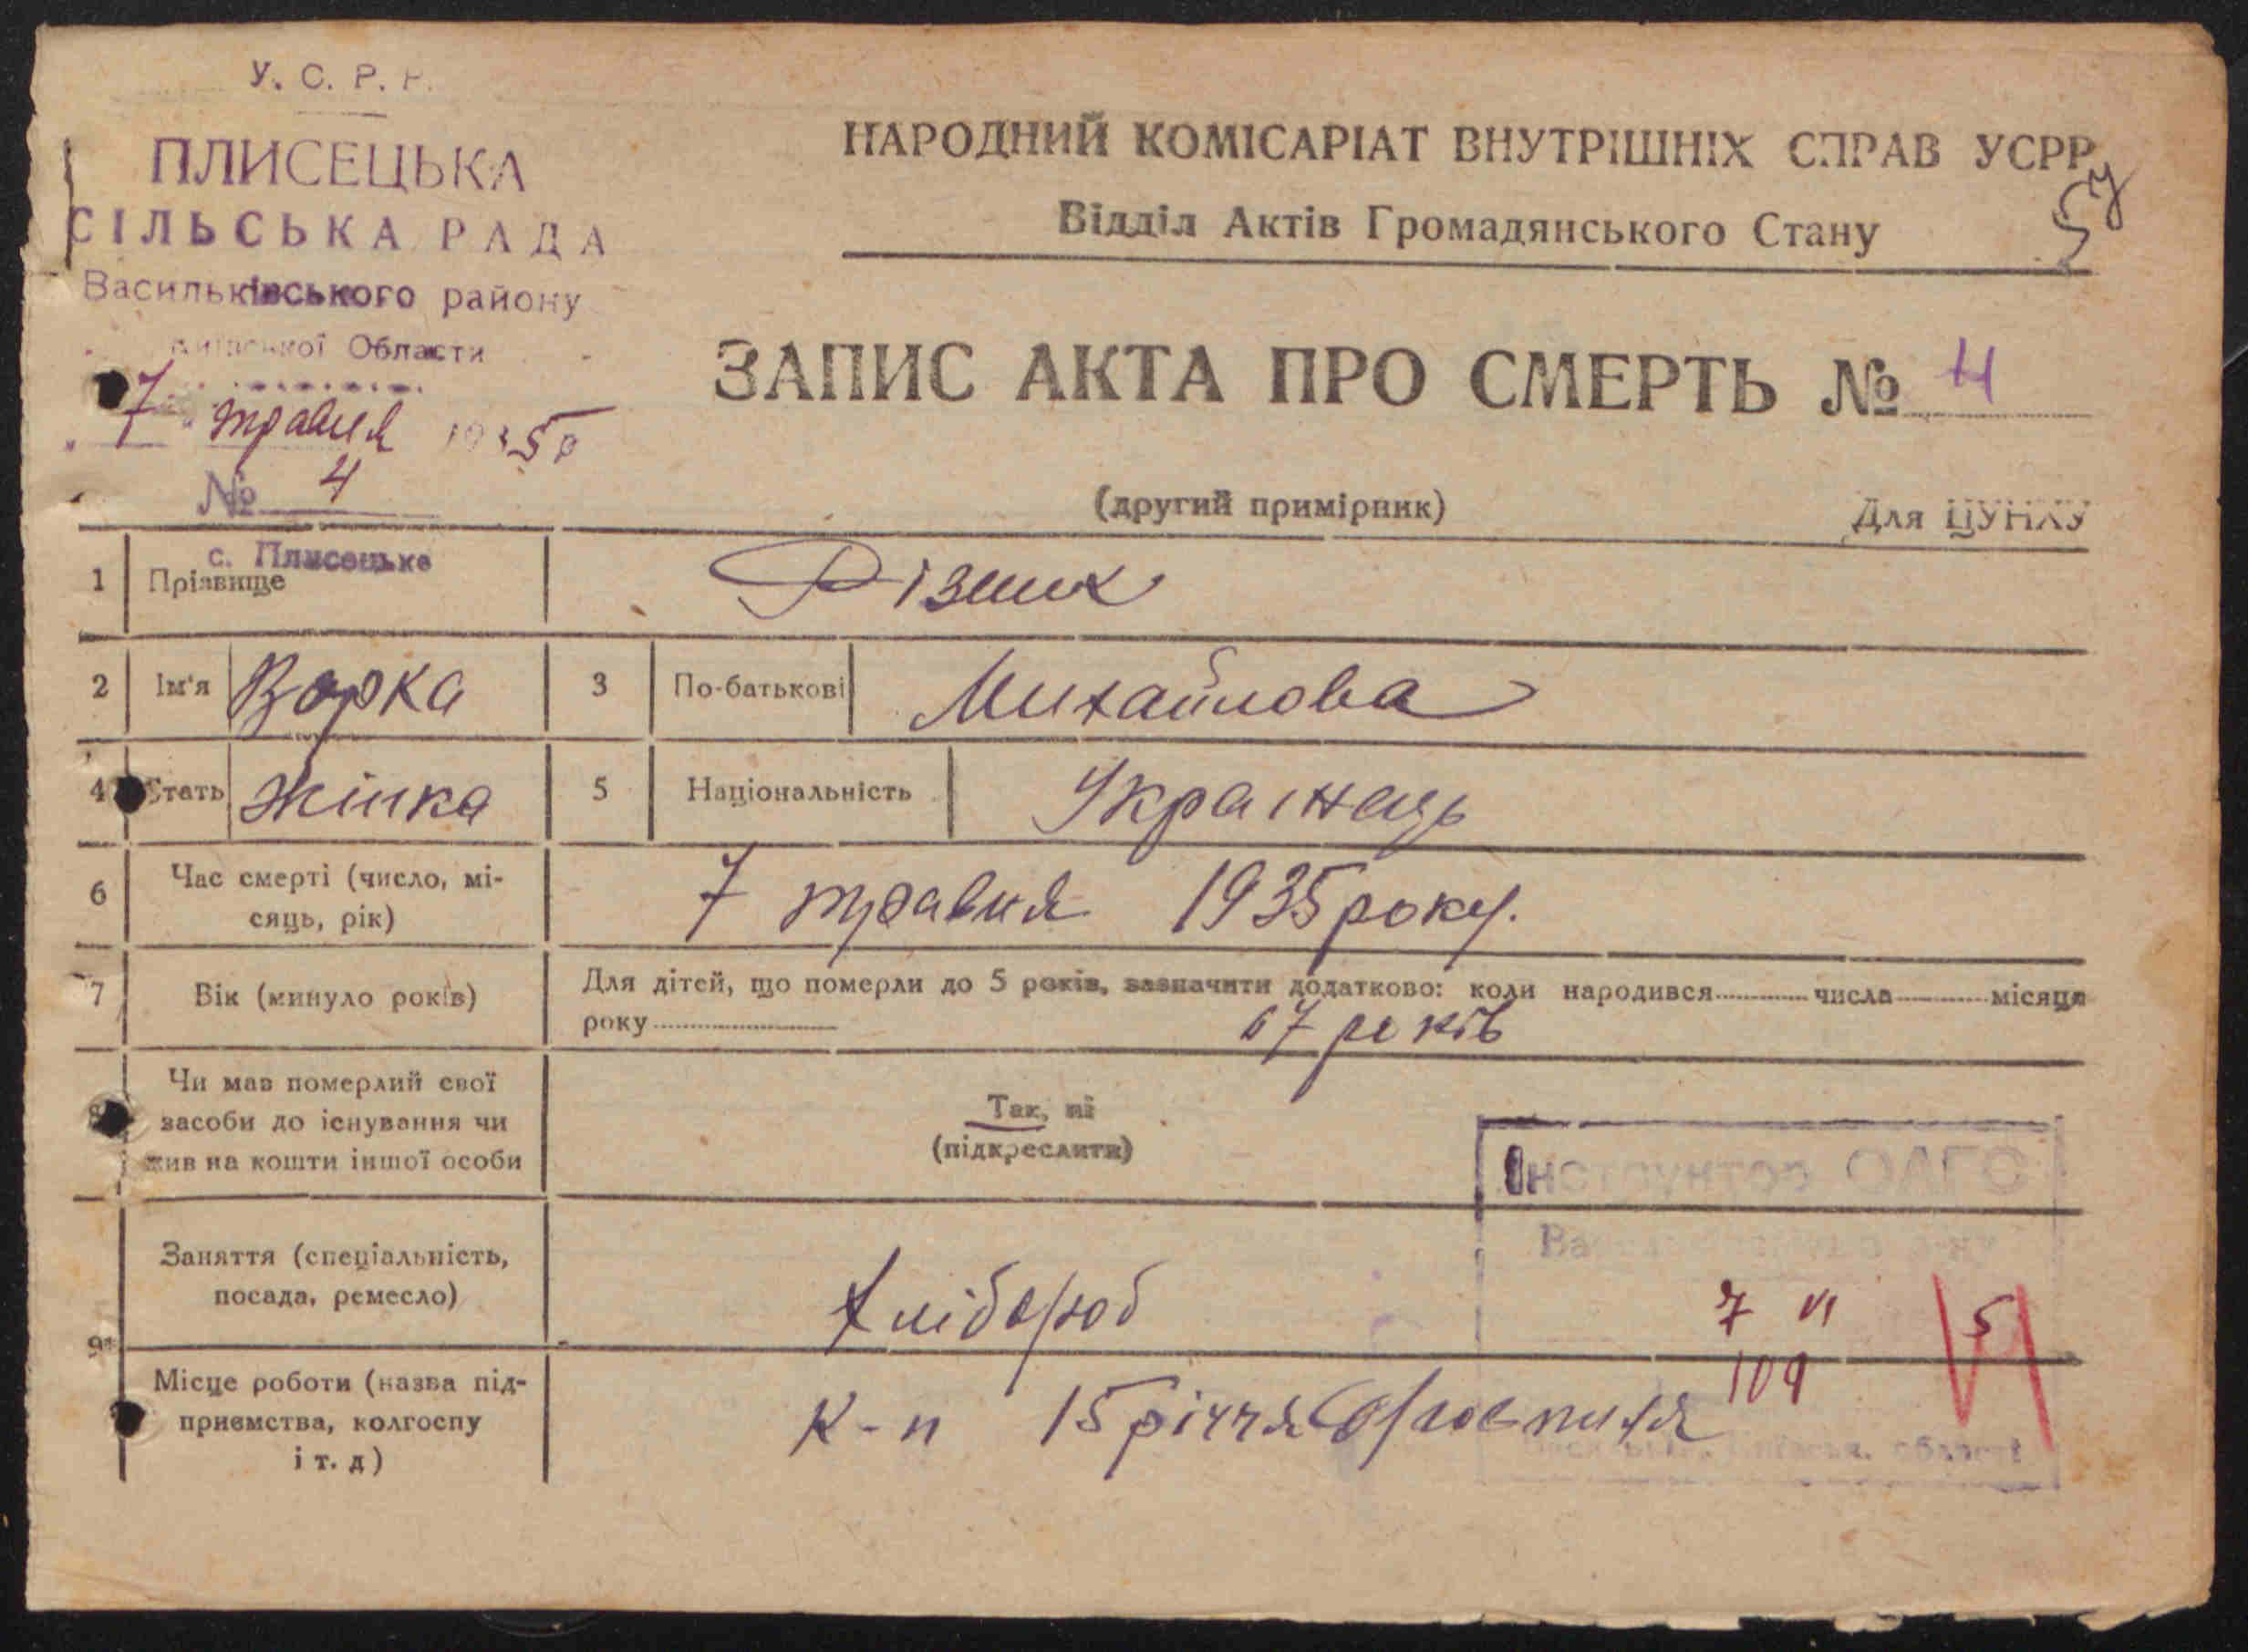 У. С. Р. Р.
ПЛИСЕЦЬКА
СІЛЬСЬКА РАДА
Васильківського району
Київської Области
"7" травня 1935 р
№ 4
с. Плисецьке
НАРОДНИЙ КОМІСАРІАТ ВНУТРІШНІХ СПРАВ УСРР
Відділ Актів Громадянського Стану
ЗАПИС АКТА ПРО СМЕРТЬ № 4
(другий примірник) Для ЦУНХУ
1 Прізвище Різник
2 Ім'я Варка 3 По-батькові Михайлова
4 Стать Жінка 5 Національність Українець
6 Час смерті (число, мі-
сяць, рік) 7 травня 1935 року.
7 Вік (минуло років) Для дітей, що померли до 5 років, зазначити додатково: коли народився числа місяця
року 67 років
8 Чи мав померлий свої
засоби до існування чи
жив на кошти іншої особи
Так, ні
(підкреслити)
Інструктор ОАГС
9 Заняття (спеціальність,
посада, ремесло) Хлібороб
7 VI 5
109
Місце роботи (назва під-
приємства, колгоспу
і т. д) К-п 15 річчя
області